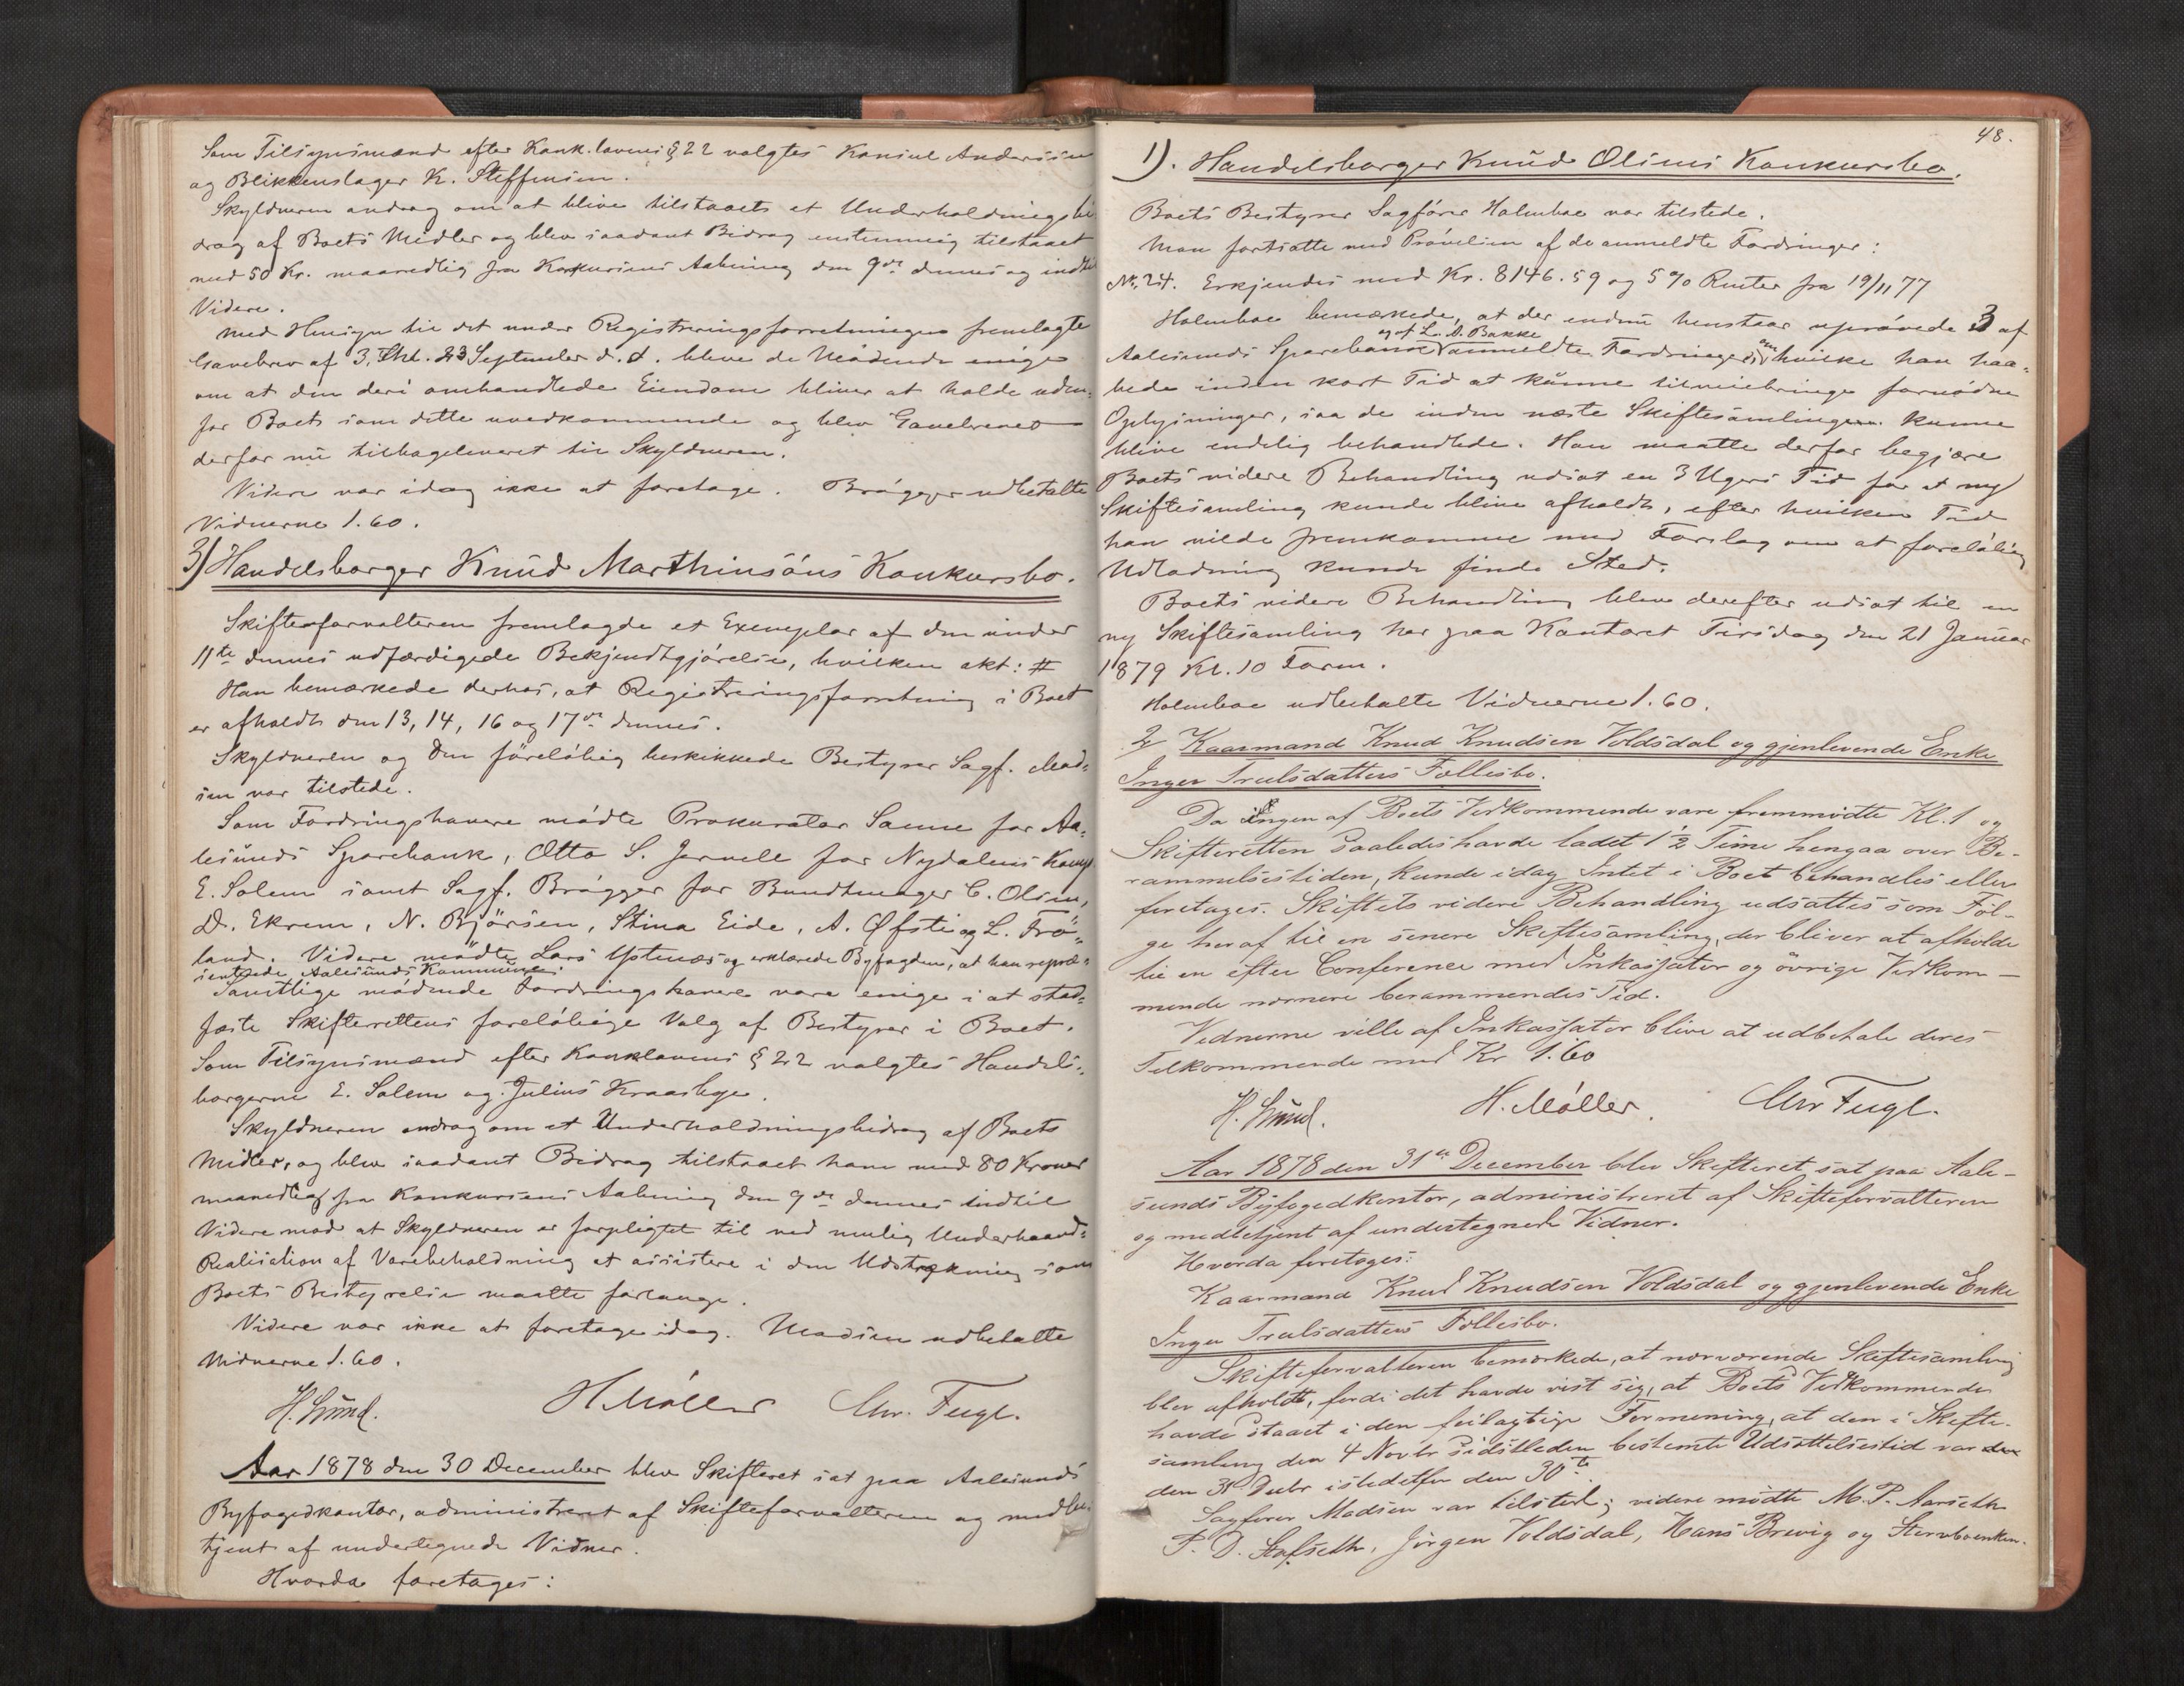 Som Tilsynsmænd efter Konk.lovens § 22 valgtes Konsul Anderssen
og Blikkenslager K. Steffensen.
Skyldneren androg om at blive tilstaaets et Underholdningsbi
drag af Boets Midler og blev saadant Bidrag enstemmig tilstaaet
med 50 Kr. maanedlig fra Konkursens Aabning den 9de dennes og indtil
Videre.
Med Hensyn til det under Registreringsforretningen fremlagte
Gavebrev af 3, Thl. 23 September d. A. bleve de Mødende enige
om at den deri omhandlede Eiendom bliver at holde uden-
for Boets som dette uvedkommende og blev Gavebrevet
derfor nu tilbageleveret til Skyldneren.
Videre var idag ikke at foretage. Brøgger udbetalte
Vidnerne 1.60.
3) Handelsborger Knud Marthinsøns Konkursbo.
Skifteforvalteren fremlagde et Exemplar af den under
11te dennes udfærdigede Bekjendtgjørelse, hvilken akt: #
Han bemærkede derhos, at Registreringsforretning i Boet
er afholdt den 13, 14, 16 og 17de dennes.
Skyldneren og den foreløbig beskikkede Bestyrer Sagf. Mad-
sen var tilstede.
Som Fordringshavere mødte Prokurator Sanne for Aa-
lesunds Sparebank, Otto S. Jervell for Nydalens Komp
E. Solem samt Sagf. Brøgger for Bundtmager C. Olsen,
D. Ekrem, N. Bjørsen, Stina Eide, A. Øfsti og L. Frø-
land. Videre mødte Lars Ystenæs og erklærede Byfogden, at han repræ-
senterede Aalesunds Kommune.
Samtlige mødende Fordringshavere vare enige i at stad-
fæste Skifterettens foreløbige Valg af Bestyrer i Boet.
Som Tilsynsmænd efter Konklovens § 22 valgtes Handels-
borgerne E. Solem og Julius Kraasbye.
Skyldneren androg om et Underholdningsbidrag af Boets
Midler, og blev saadant Bidrag tilstaaet ham med 80 Kroner
maanedlig fra Konkursens Aabning den 9de dennes indtil
Videre mod at Skyldneren er forpligtet til ved mulig Underhaand-
Realisation af Varebeholdning at assistere i den Udstrækning som
Boets Bestyrelse maatte forlange.
Videre var ikke at foretage idag. Madsen udbetalte
Vidnerne 1.60.
H. Lund. H Møller Chr. Fugl.
Aar 1878 den 30 December blev Skifteret sat paa Aalesunds
Byfogedkontor, administreret af Skifteforvalteren og medbe-
tjent af undertegnede Vidner.
Hvorda foretages:
48.
1). Handelsborger Knud Olsens Konkursbo.
Boets Bestyrer Sagfører Holmboe var tilstede.
Man fortsatte med Prøvelsen af de anmeldte Fordringer:
No. 24. Erkjendes med Kr. 8146.59 og 5 % Renter fra 19/11 77
Holmboe bemærkede, at der endnu henstaar uprøvede 3 af
og af L. A. Bakke
Aalesunds Sparebank anmeldte Fordringer, om hvilke han haa-
bede inden kort Tid at kunne tilveiebringe fornødne
Oplysninger, saa de inden næste Skiftesamling kunne
blive endelig behandlede. Han maatte derfor begjære
Boets videre Behandling udsat en 3 Ugers Tid for at ny
Skiftesamling kunde blive afholdt, efter hvilken Tid
han vilde fremkomme med Forslag om at foreløbig
Udlodning kunde finde Sted.
Boets videre Behandling blev derefter udsat til en
ny Skiftesamling her paa Kontoret Tirsdag den 21 Januar
1879 Kl. 10 Form.
Holmboe udbetalte Vidnerne 1.60.
2/ Kaarmand Knud Knudsen Voldsdal og gjenlevende Enke
Inger Trulsdatters Fællesbo.
Da Ingen af Boets Vedkommende vare fremmødte Kl. 1 og
Skifteretten saaledes havde ladet 1 1/2 Time hengaa over Be-
rammelsestiden, kunde idag Intet i Boet behandles eller
foretages. Skiftets videre Behandling udsattes som Føl-
ge heraf til en senere Skiftesamling, der bliver at afholde
til en efter Conference med Inkassator og øvrige Vedkom-
mende nærmere berammendes Tid.
Vidnerne ville af Inkassator blive at udbetale deres
Tilkommende med Kr 1.60
H. Lund. H. Møller. Chr Fugl.
Aar 1878 den 31te December blev Skifteret sat paa Aale-
sunds Byfogedkontor, administreret af Skifteforvalteren
og medbetjent af undertegnede Vidner.
Hvorda foretoges:
Kaarmand Knud Knudsen Voldsdal og gjenlevende Enke
Inger Trulsdatters Fællesbo.
Skifteforvalteren bemærkede, at nærværende Skiftesamling
blev afholdt, fordi det havde vist sig, at Boets Vedkommende
havde staaet i den feilagtige Formening, at den i Skifte-
samling den 4 Novbr sidstleden bestemte Udsættelsestid var
den 31 Decbr istedetfor den 30te.
Sagfører Madsen var tilsted; videre mødte M. P. Aarseth
P. D. Stafseth, Jørgen Voldsdal, Hans Brevig og Stervboenken.